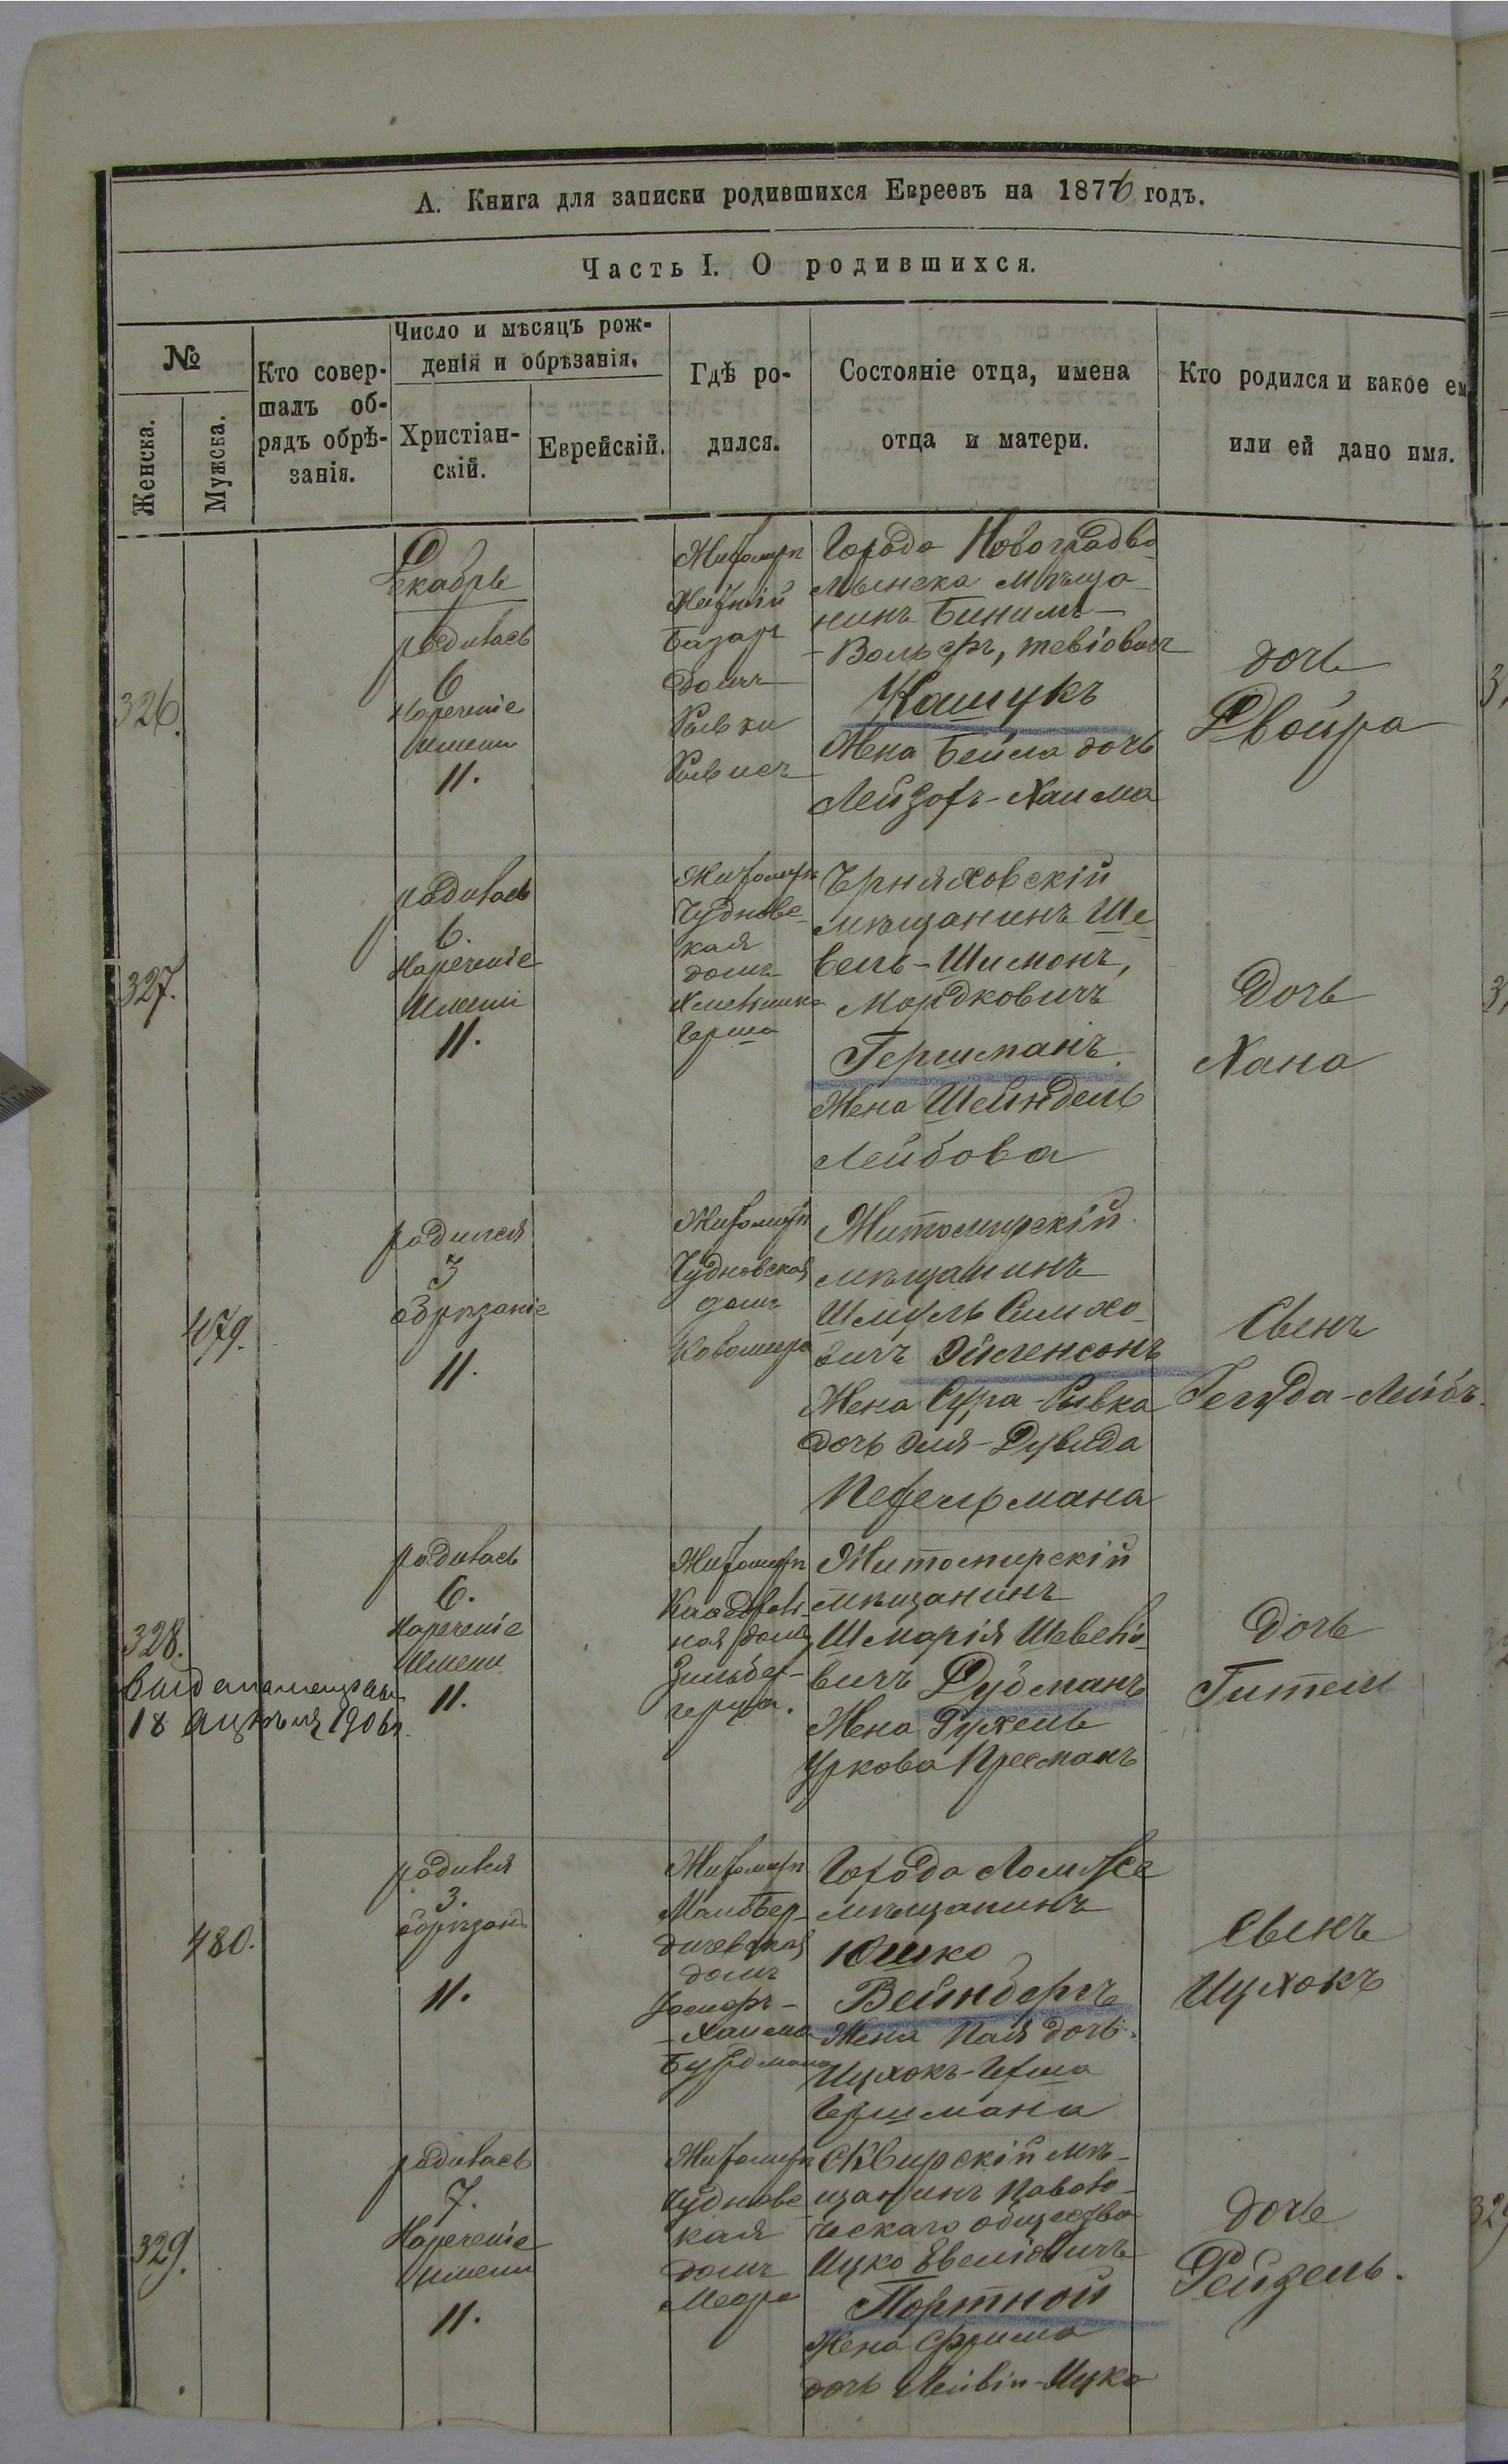 А. Книга для записки родившихся Евреевъ на 1876 годъ.
Часть I. О родившихся.
№
Женска.
Мужска.
Кто совер-
шалъ об-
рядъ обрѣ-
занія.
Число и мѣсяцъ рож-
денія и обрѣзанія.
Христіан-
скій.
Еврейскій.
Гдѣ ро-
дился.
Состояніе отца, имена
отца и матери.
Кто родился и какое ем
или ей дано имя.
326.
Декабрь
родилась
6
Нареченіе
Имени
11.
Житомиръ
базаръ
домъ
Города Новоградво
лынска мѣща-
нинъ Бинимъ-
-Вольфъ, Тевіовичъ
Кашукъ
Жена Бейла дочь
Лейзоръ-Хаима
дочь
Двойра
327.
родилась
6.
Нареченіе
Имени
11.
Житомиръ
Чудновс-
кая
домъ
Герша
Черняховскій
мѣщанинъ Ше
вель-Шимонъ,
Мордковичъ
Гершманъ.
Жена Шейндель
Лейбова
Дочь
Хана
479.
родился
3
обрѣзаніе
11.
Житомиръ
Чудновская
домъ
Житомирскій
мѣщанинъ
Шмуль Симхо-
вичъ Эйгенсонъ
Жена Сура-Ривка
дочь Эля-Дувида
Перельмана
Сынъ
Гегуда-Лейбъ.
328.
18 1906 г.
родилась
6.
Нареченіе
Имени
11.
Житомиръ
ная домъ
Зильбер-
Житомирскій
мѣщанинъ
Шмарія Шевелі-
вичъ Дудманъ
Жена Рухель
Уркова Пресманъ
Дочь
Гитель
480.
родился
3.
обрѣзаніе
11.
Житомиръ
Мал.Бер-
дичевская
домъ
-Хаима
Бурдмана
Города Ломже
мѣщанинъ
Юшко
Вейнбергъ
Жена Пая дочь
Ицхокъ-Герша
Гершмана
Сынъ
Ицхокъ
329.
родилась
7.
Нареченіе
Имени
11.
Житомиръ
Чудновс
кая
домъ
Меера
Сквирскій мѣ-
щанинъ Паволо-
ческаго общества
Ицко Евеліовичъ
Портной
Жена Фрима
дочь Лейви-Ицка
дочь
Рейзель.